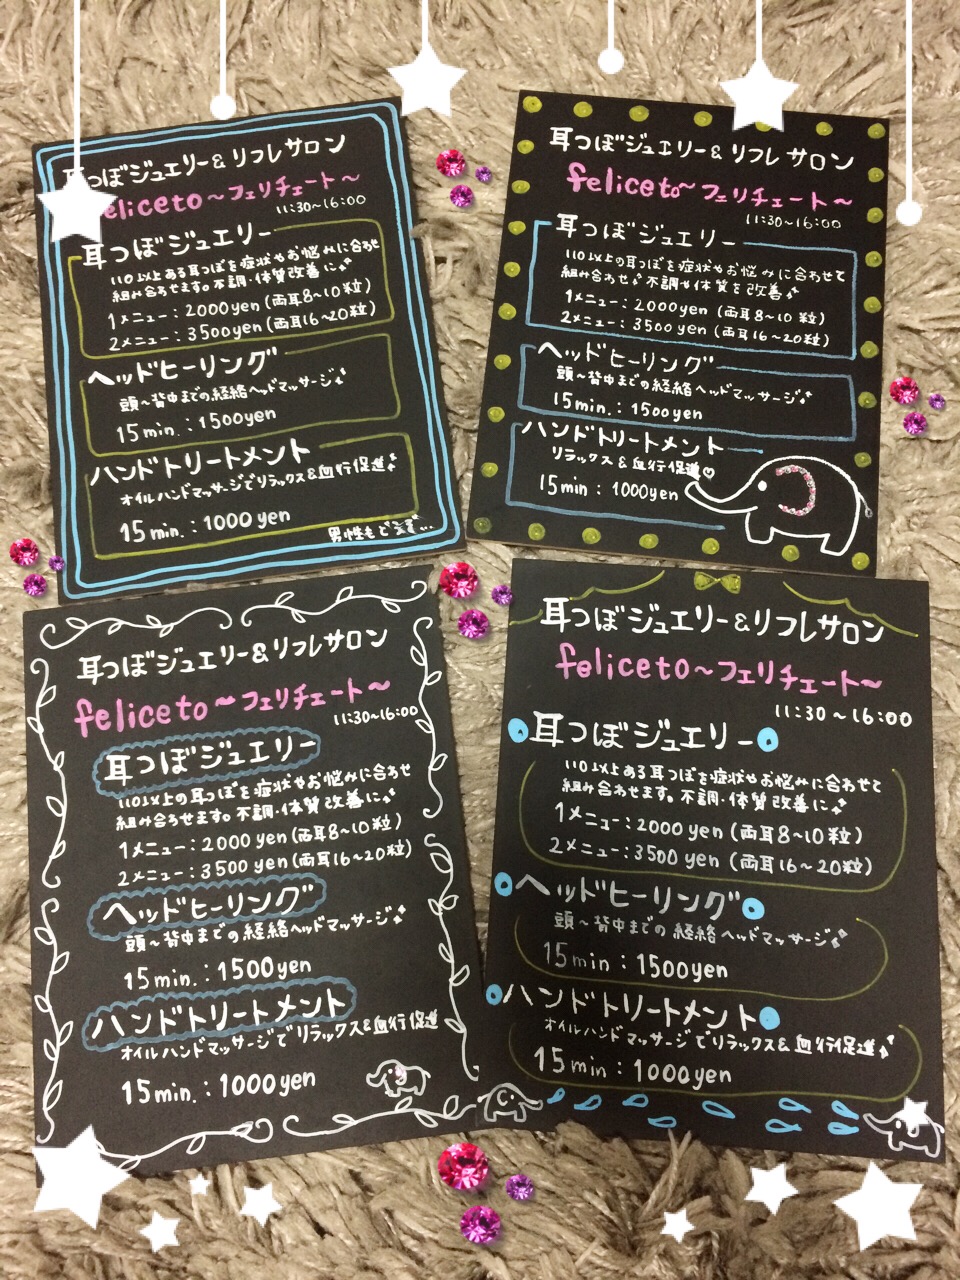 耳つぼジュエリー&リフレサロン
feliceto～フェリチェート～
11:30～16:00
耳つぼジュエリー
110以上ある耳つぼを症状やお悩みに合わせ
組み合わせます。不調・体質改善に
1メニュー:2000yen(両耳8～10粒)
2メニュー:3500yen(両耳16～20粒)
ヘッドヒーリング
頭～背中までの経絡ヘッドマッサージ
15min.:1500yen
ハンドトリートメント
オイルハンドマッサージでリラックス&血行促進
15min.:1000yen
男性もどうぞ...
耳つぼジュエリー&リフレサロン
feliceto～フェリチェート～
11:30～16:00
耳つぼジュエリー
110以上の耳つぼを症状やお悩みに合わせて
組み合わせ♪不調や体質を改善
1メニュー:2000yen(両耳8～10粒)
2メニュー:3500yen(両耳16～20粒)
ヘッドヒーリング
頭～背中までの経絡ヘッドマッサージ
15min.:1500yen
ハンドトリートメント
リラックス&血行促進♡
15min:1000yen
耳つぼジュエリー&リフレサロン
feliceto～フェリチェート～
11:30～16:00
耳つぼジュエリー
110以上の耳つぼを症状やお悩みに合わせ
組み合わせます。不調・体質改善に
1メニュー:2000yen(両耳8～10粒)
2メニュー:3500yen(両耳16～20粒)
ヘッドヒーリング
頭～背中までの経絡ヘッドマッサージ
15min.:1500yen
ハンドトリートメント
オイルハンドマッサージでリラックス&血行促進
15min.:1000yen
耳つぼジュエリー&リフレサロン
feliceto～フェリチェート～
11:30～16:00
耳つぼジュエリー
110以上ある耳つぼを症状やお悩みに合わせて
組み合わせます。不調・体質改善に
1メニュー:2000yen(両耳8～10粒)
2メニュー:3500yen(両耳16～20粒)
ヘッドヒーリング
頭～背中までの経絡ヘッドマッサージ
15min:1500yen
ハンドトリートメント
オイルハンドマッサージでリラックス&血行促進
15min:1000yen